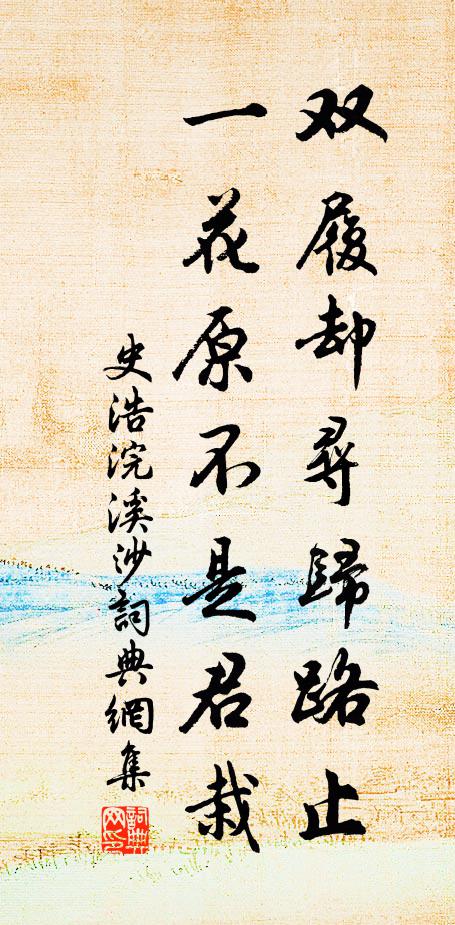 双履却尋歸路止
一花原不是君栽
史浩浣溪沙詞典網集
詞典网印